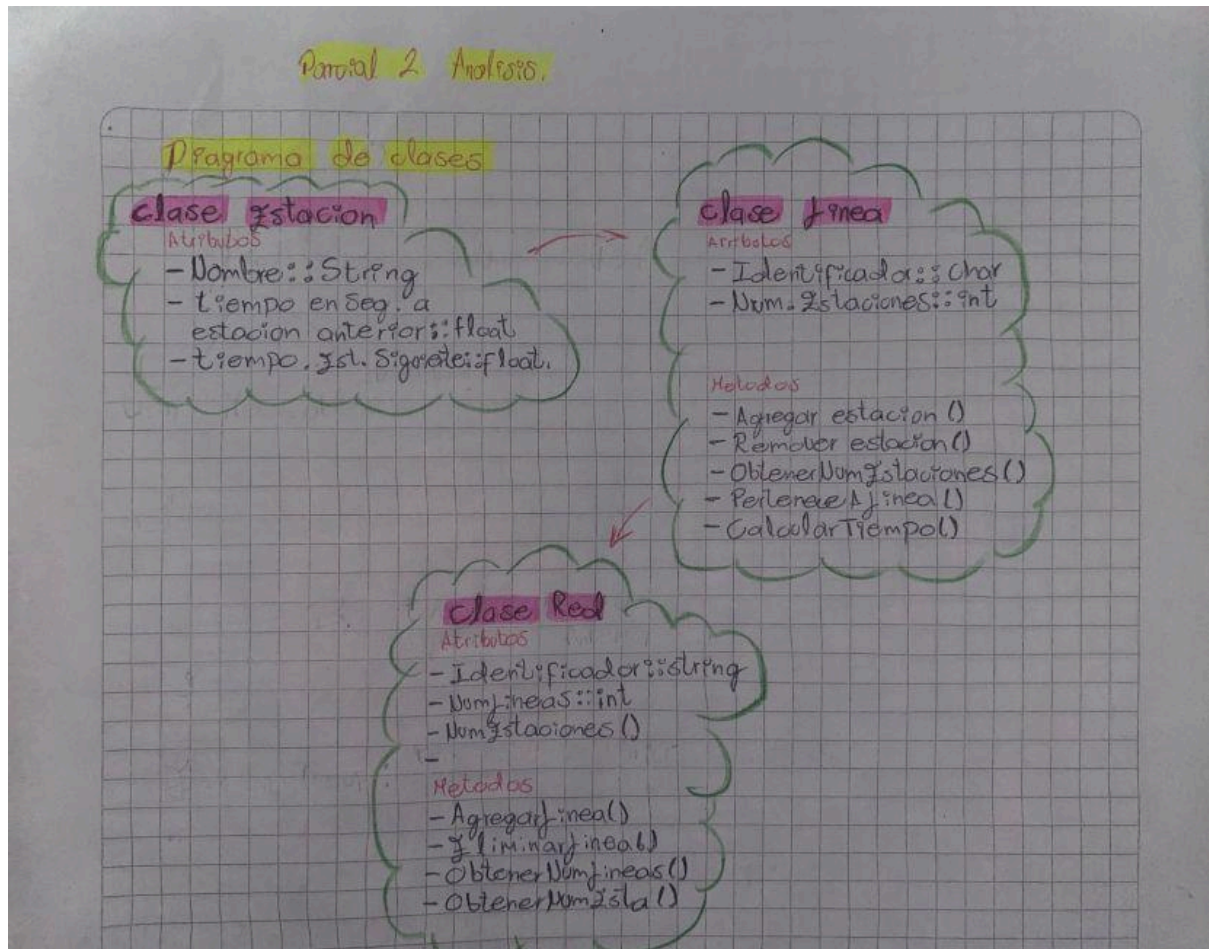 Parcial 2 Analisis.
Diagrama de clases
clase Estacion
Atributos
- Nombre:: String
- tiempo en Seg. a
estacion anterior:: float
- tiempo. Est. Siguiente:: float.
clase Linea
Atributos
- Identificador:: Char
- Num. Estaciones:: int
Metodos
- Agregar estacion ()
- Remover estacion ()
- ObtenerNumEstaciones ()
- PerteneceALinea ()
- CalcularTiempo ()
clase Red
Atributos
- Identificador:: string
- NumLineas:: int
- NumEstaciones ()
-
Metodos
- AgregarLinea()
- EliminarLinea()
- ObtenerNumLineas ()
- ObtenerNumEsta ()